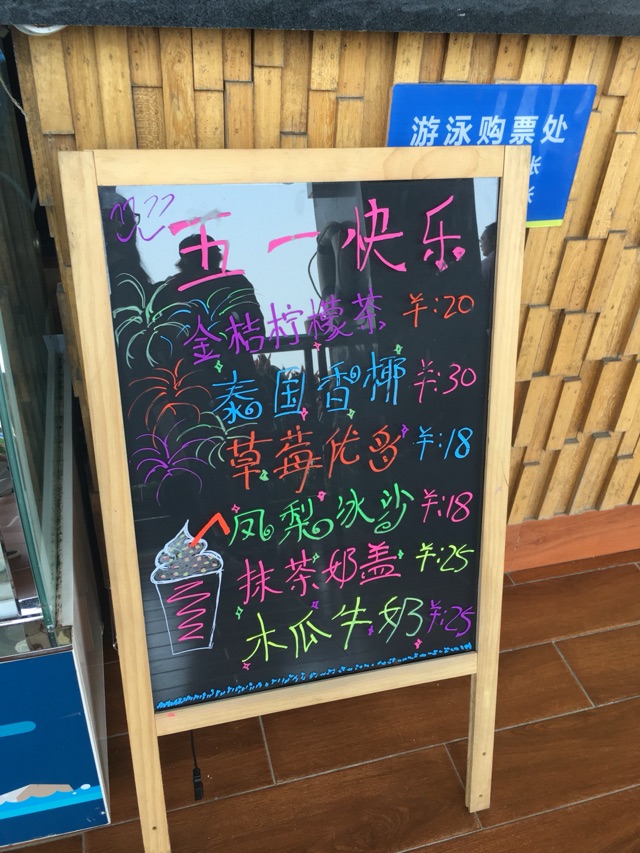 游泳购票处
长
长
五一快乐
金桔柠檬茶 ¥:20
泰国香椰 ¥:30
草莓优多 ¥:18
凤梨冰沙 ¥:18
抹茶奶盖 ¥:25
木瓜牛奶 ¥:25